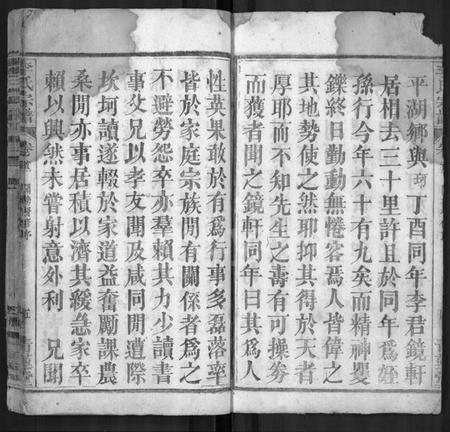 平湖鄉與珂丁酉同年李君鏡軒
居相去三十里許且於同年為姪
孫行今年六十有九矣而精神矍
鑠終日勤動無惓容焉人皆偉之
其地勢使之然耶抑其得於天者
厚耶而不知先生之壽有可操券
而獲者聞之鏡軒同年曰其為人
性英果敢於有為行事多磊落率
皆於家庭宗族閒有關係者為之
不避勞怨卒亦羣賴其力少讀書
事父兄以孝友聞及咸同閒遭際
坎坷讀遂輟於家道益奮勵課農
桑閒亦事居積以濟其緩急家卒
賴以興然未嘗射意外利 兄聞
李氏宗譜
卷首
五